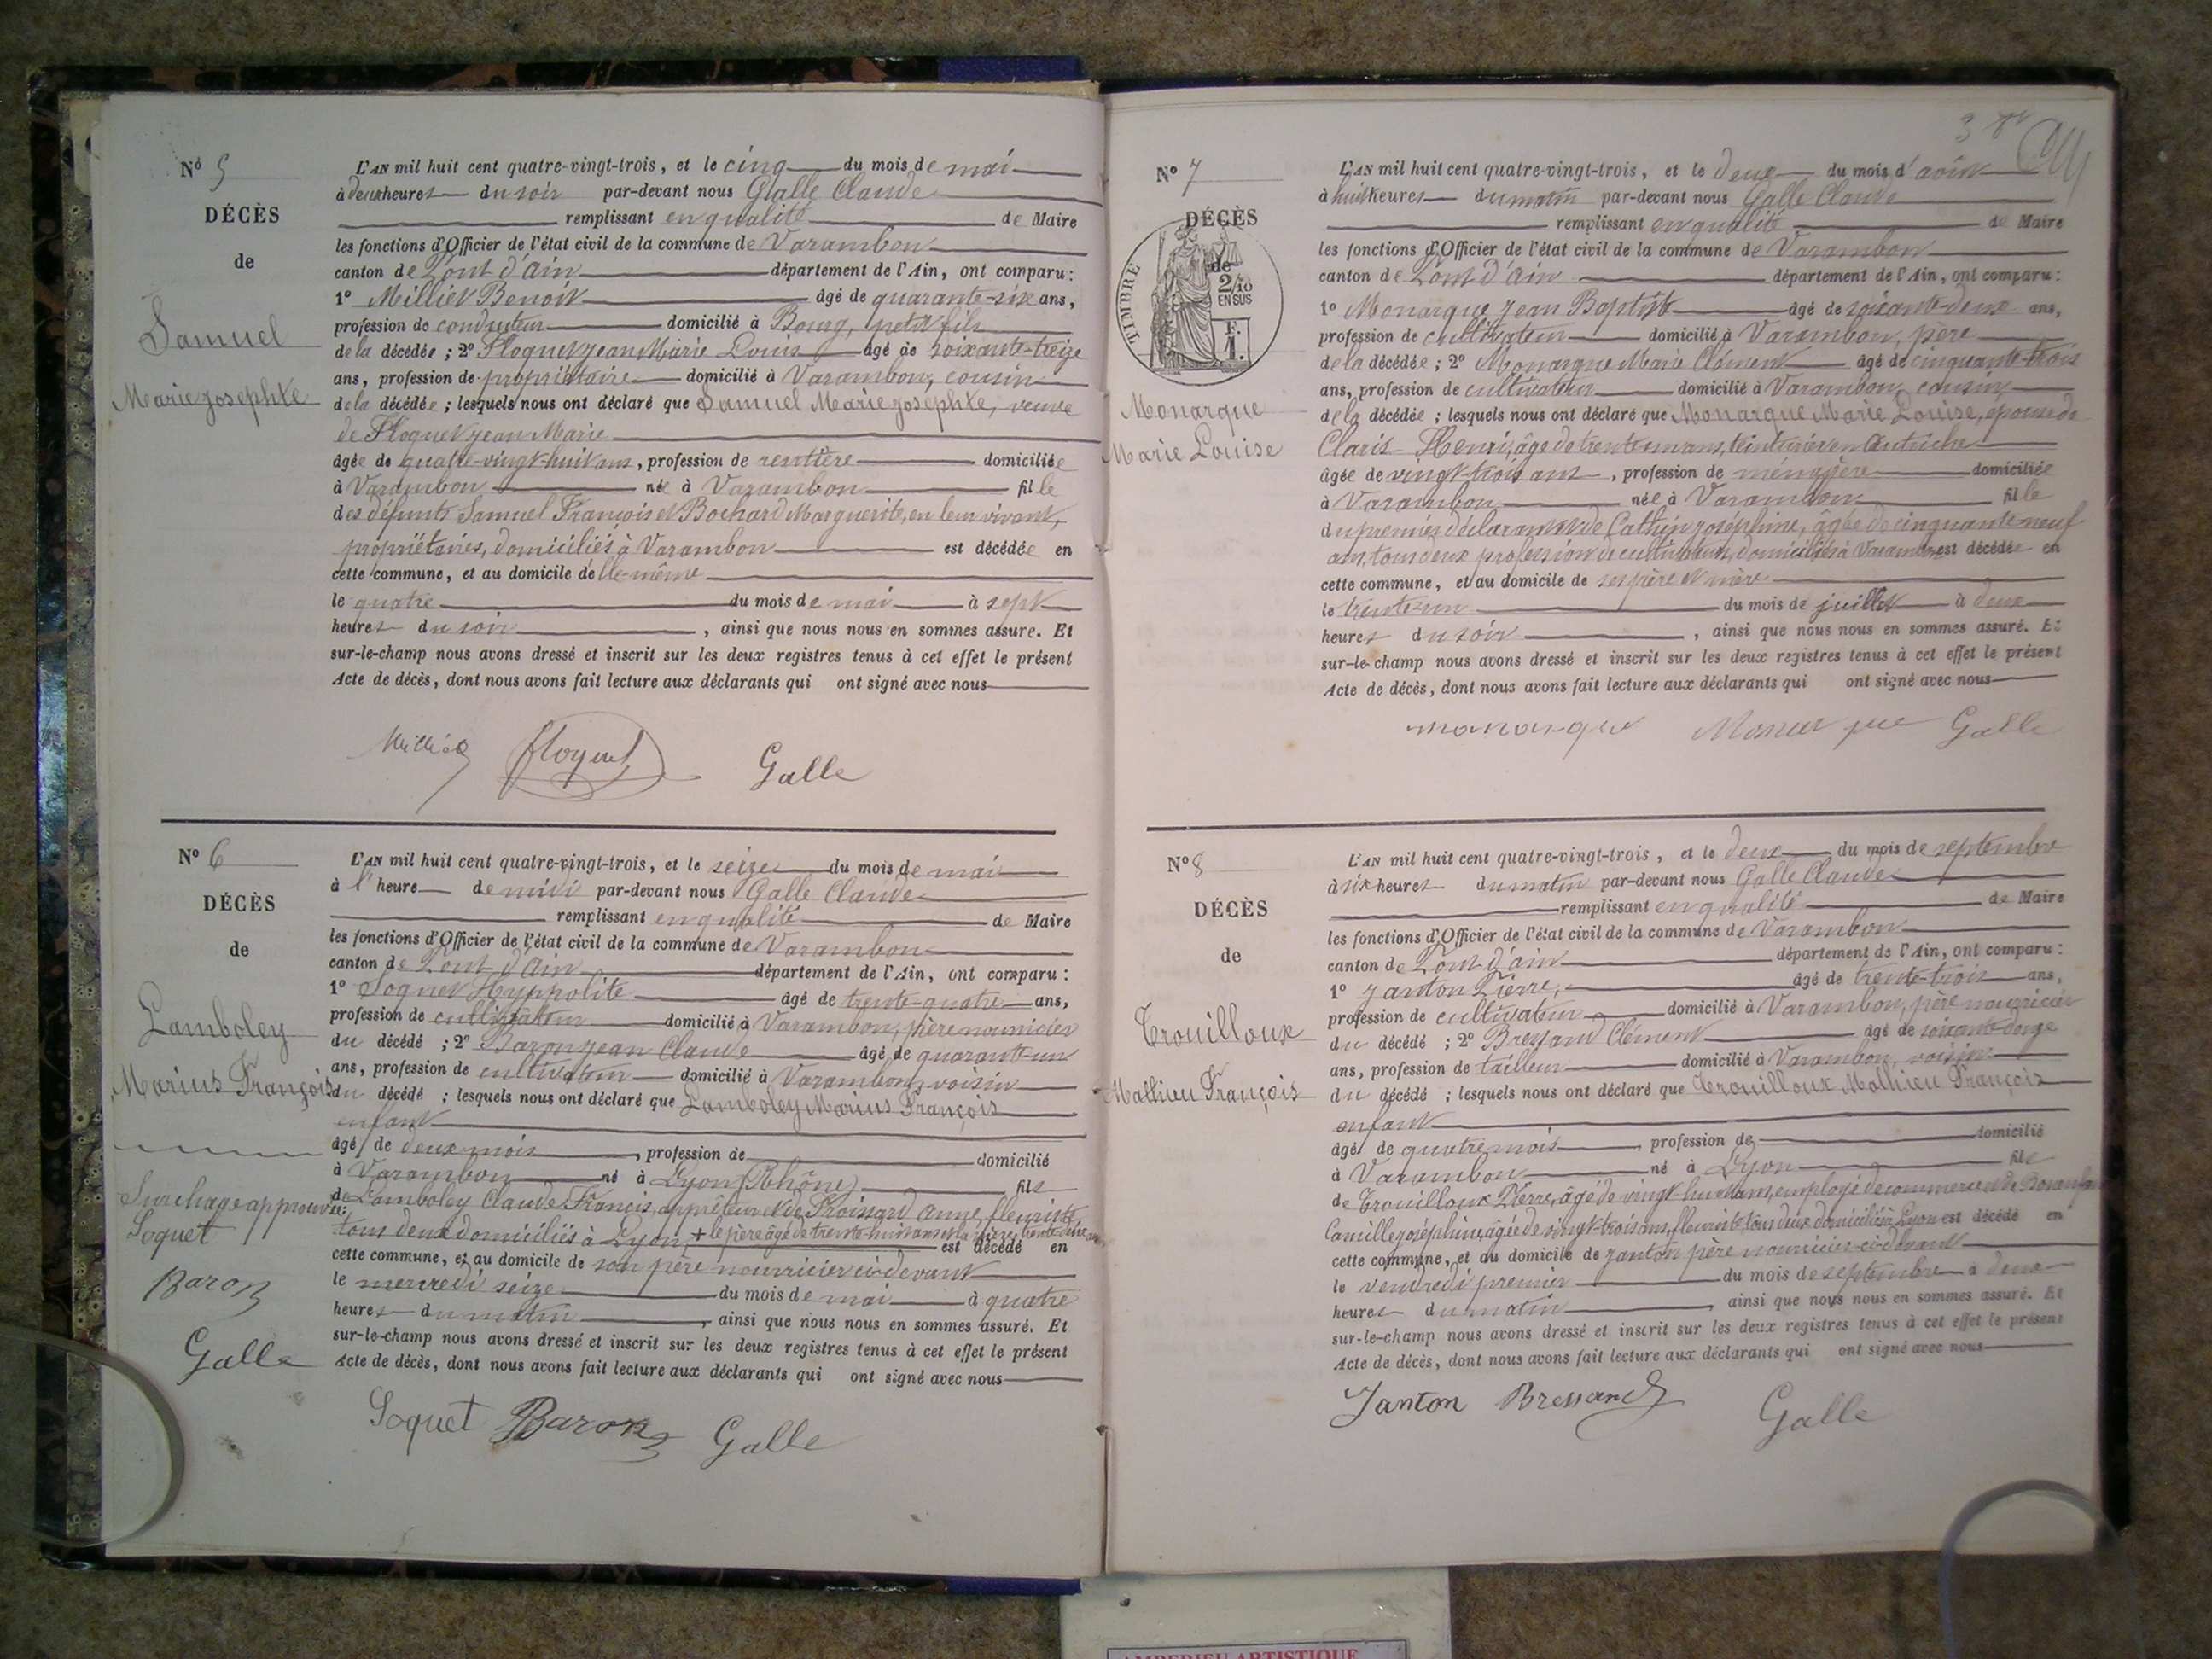 Nº 5
DÉCÈS
de
Samuel
Marie Josephte
L'AN mil huit cent quatre-vingt-trois, et le cinq du mois de mai
à deux heures du soir par-devant nous Galle Claude
remplissant en qualité de Maire
les fonctions d'Officier de l'état civil de la commune de Varambon
canton de Pont d'Ain département de l'Ain, ont comparu :
1º Milliet Benoit âgé de quarante-six ans,
profession de conducteur domicilié à Bourg, petit fils
de la décédée ; 2º Floquet Jean Marie Louis âgé de soixante-treize
ans, profession de propriétaire domicilié à Varambon, cousin
de la décédée ; lesquels nous ont déclaré que Samuel Marie Josephte, veuve
de Floquet Jean Marie
âgée de quatre-vingt-huit ans, profession de rentière domiciliée
à Varambon née à Varambon fille
des défunts Samuel François et Bochard Marguerite, en leur vivant,
propriétaires, domiciliés à Varambon est décédée en
cette commune, et au domicile d'elle-même
le quatre du mois de mai à sept
heures du soir, ainsi que nous nous en sommes assuré. Et
sur-le-champ nous avons dressé et inscrit sur les deux registres tenus à cet effet le présent
Acte de décès, dont nous avons fait lecture aux déclarants qui ont signé avec nous
Floquet Galle
Nº 6
DÉCÈS
de
Lamboley
Marius François
Surchage approuvée:
Soquet
Baron
Galle
L'AN mil huit cent quatre-vingt-trois, et le seize du mois de mai
à l'heure de midi par-devant nous Galle Claude
remplissant en qualité de Maire
les fonctions d'Officier de l'état civil de la commune de Varambon
canton de Pont d'Ain département de l'Ain, ont comparu :
1º Soquet Hyppolite âgé de trente-quatre ans,
profession de cultivateur domicilié à Varambon, père nourricier
du décédé ; 2º Baron Jean Claude âgé de quarante-un
ans, profession de cultivateur domicilié à Varambon, voisin
du décédé ; lesquels nous ont déclaré que Lamboley Marius François
enfant
âgé de deux mois, profession de domicilié
à Varambon né à Lyon (Rhône) fils
de Lamboley Claude Francis, apprêteur et de Froissard Anne, fleuriste
tous deux domiciliés à Lyon, + le père âgé de trente-huit ans et la mère trente-deux ans
est décédé en
cette commune, et au domicile de son père nourricier ci-devant
le mercredi seize du mois de mai à quatre
heures du matin, ainsi que nous nous en sommes assuré. Et
sur-le-champ nous avons dressé et inscrit sur les deux registres tenus à cet effet le présent
Acte de décès, dont nous avons fait lecture aux déclarants qui ont signé avec nous
Soquet Baron Galle
3
Nº 7
DÉCÈS
de
TIMBRE
2/10
EN SUS
F.
1.
Monarque
Marie Louise
L'AN mil huit cent quatre-vingt-trois, et le deux du mois d'août
à huit heures du matin par-devant nous Galle Claude
remplissant en qualité de Maire
les fonctions d'Officier de l'état civil de la commune de Varambon
canton de Pont d'Ain département de l'Ain, ont comparu :
1º Monarque Jean Baptiste âgé de soixante-deux ans,
profession de cultivateur domicilié à Varambon, père
de la décédée ; 2º Monarque Marie Clément âgé de cinquante-trois
ans, profession de cultivateur domicilié à Varambon, cousin
de la décédée ; lesquels nous ont déclaré que Monarque Marie Louise, épouse de
Claris Henri, âgé de trente-un ans, teinturier en Autriche
âgée de vingt-trois ans, profession de ménagère domiciliée
à Varambon née à Varambon fille
du premier déclarant et de Cathin Joséphine, âgée de cinquante-neuf
ans, tous deux profession de cultivateurs, domiciliés à Varambon est décédée en
cette commune, et au domicile de ses père et mère
le trente-un du mois de juillet à deux
heures du soir, ainsi que nous nous en sommes assuré. Et
sur-le-champ nous avons dressé et inscrit sur les deux registres tenus à cet effet le présent
Acte de décès, dont nous avons fait lecture aux déclarants qui ont signé avec nous
monarque Monarque Galle
Nº 8
DÉCÈS
de
Trouilloux
Mathieu François
L'AN mil huit cent quatre-vingt-trois, et le deux du mois de septembre
à six heures du matin par-devant nous Galle Claude
remplissant en qualité de Maire
les fonctions d'Officier de l'état civil de la commune de Varambon
canton de Pont d'ain département de l'Ain, ont comparu :
1º Janton Pierre, âgé de trente-trois ans,
profession de cultivateur domicilié à Varambon, père nourricier
du décédé ; 2º Bressand Clément âgé de soixante-douze
ans, profession de tailleur domicilié à Varambon, voisin
du décédé ; lesquels nous ont déclaré que Trouilloux Mathieu François
enfant
âgé de quatre mois, profession de domicilié
à Varambon né à Lyon fils
de Trouilloux Pierre, âgé de vingt-huit ans, employé de commerce et de
Camille Joséphine, âgée de vingt-trois ans, fleuriste, tous deux domiciliés à Lyon est décédé en
cette commune, et au domicile de Janton père nourricier ci-devant
le vendredi premier du mois de septembre à deux
heures du matin, ainsi que nous nous en sommes assuré. Et
sur-le-champ nous avons dressé et inscrit sur les deux registres tenus à cet effet le présent
Acte de décès, dont nous avons fait lecture aux déclarants qui ont signé avec nous
Janton Bressand Galle
AMBERIEU ARTISTIQUE